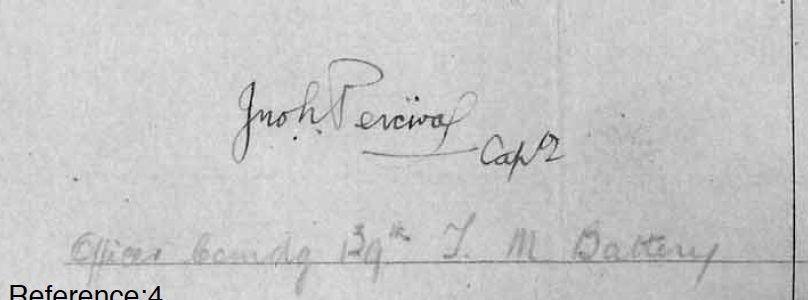 Jno h. Percival
Capt
Officer Comdg 139th T. M. Battery
Reference:4